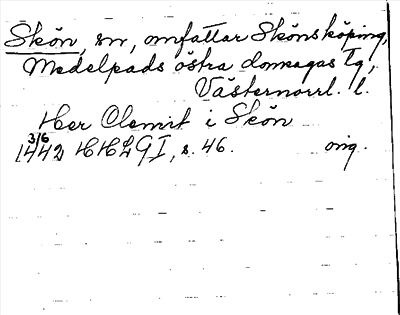 Skön, sn, omfattar Sköns köping,
Medelpads östra domsagas Tg,
Västernorrl. l.
Her Clemit i Skön
3/6
1442 HHLG I, s. 46. orig.